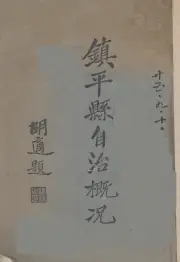 十五、九、十、
鎮平縣自治概况
胡適題